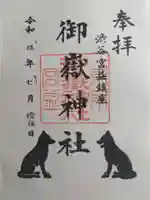 奉拝
渋谷宮益鎮座
御嶽神社
令和伍年七月拾伍日